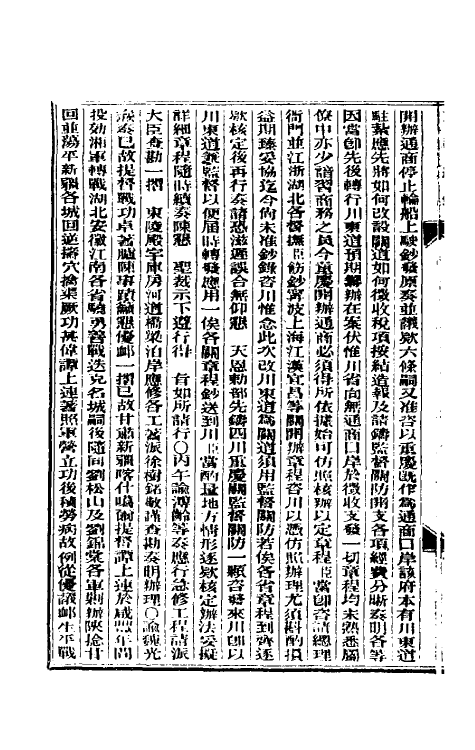 開辦通商停止輪船上駛鈔發原奏並議欵六條嗣又准咨以重慶既作爲通商口岸該府本有川東道
駐紥應先將如何改設關道如何徵收稅項按結造報及請鑄監督關防開支各項經費分晰奏明各等
因當卽先後轉行川東道預期籌辦在案伏惟川省向無通商口岸於徵收支發一切章程均未熟悉屬
僚中亦少諳習商務之員今重慶開辦通商必須得所依據始可仿照核辦以定章程臣當卽咨請總理
衙門並江浙湖北各督撫臣飭鈔寧波上海江漢宜昌等關開辦章程咨川以憑仿照辦理尤須斟酌損
益期臻妥協迄今尙未准鈔錄咨川惟念此次改川東道爲關道須用監督關防若俟各省章程到齊逐
欵核定後再行奏請恐滋遲誤合無仰懇　天恩勅部先鑄四川重慶關監督關防一顆咨發來川卽以
川東道兼監督以便屆時轉發應用一俟各關章程鈔送到川臣當酌量地方情形逐欵核定辦法妥擬
詳細章程隨時續奏陳懇　聖裁示下遵行得　旨如所請行〇丙午諭溥齡等奏應行急修工程請派
大臣查勘一摺　東陵殿宇庫房河道橋梁泊岸應修各工著派徐樹銘敬謹查勘奏明辦理〇諭魏光
燾奏已故提督戰功卓著臚陳事蹟籲懇優卹一摺已故甘肅新疆喀什噶爾提督譚上連於咸豐年間
投効湘軍轉戰湖北安徽江南各省驍勇善戰迭克名城嗣後隨同劉松山及劉錦棠各軍剿辦陝捻甘
回並蕩平新疆各城回逆搗穴擒渠厥功甚偉譚上連著照軍營立功後積勞病故例從優議卹生平戰